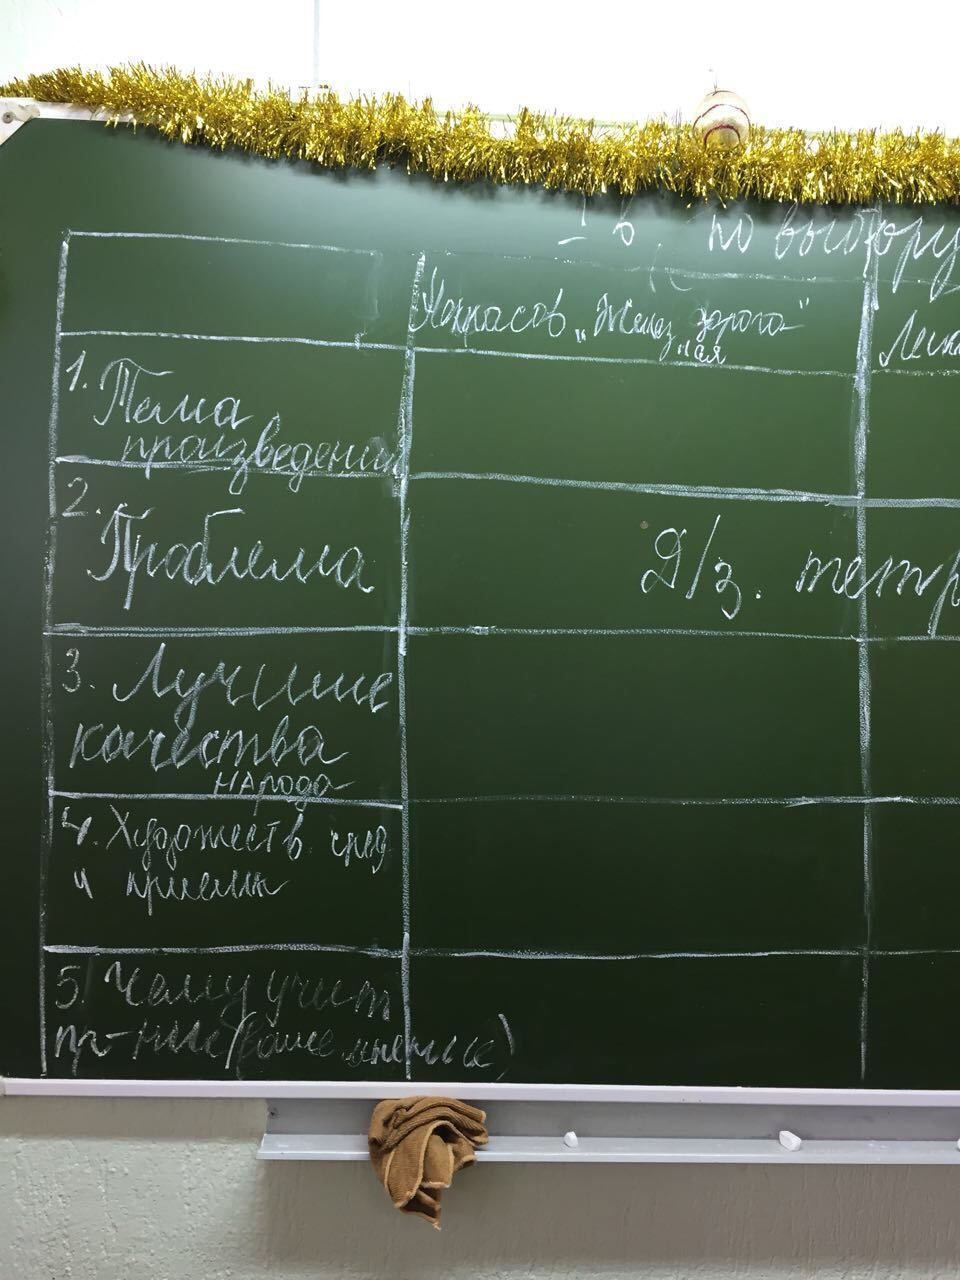 I в (по выбору
Некрасов „Желез дорога"
ная
Леск
1. Тема
произведения
2.
Проблема
Д/з. тетр
3. Лучшие
качества
народа
4. Художеств. сред
и приемы
5. Чему учит
пр-ние (ваше мнение)